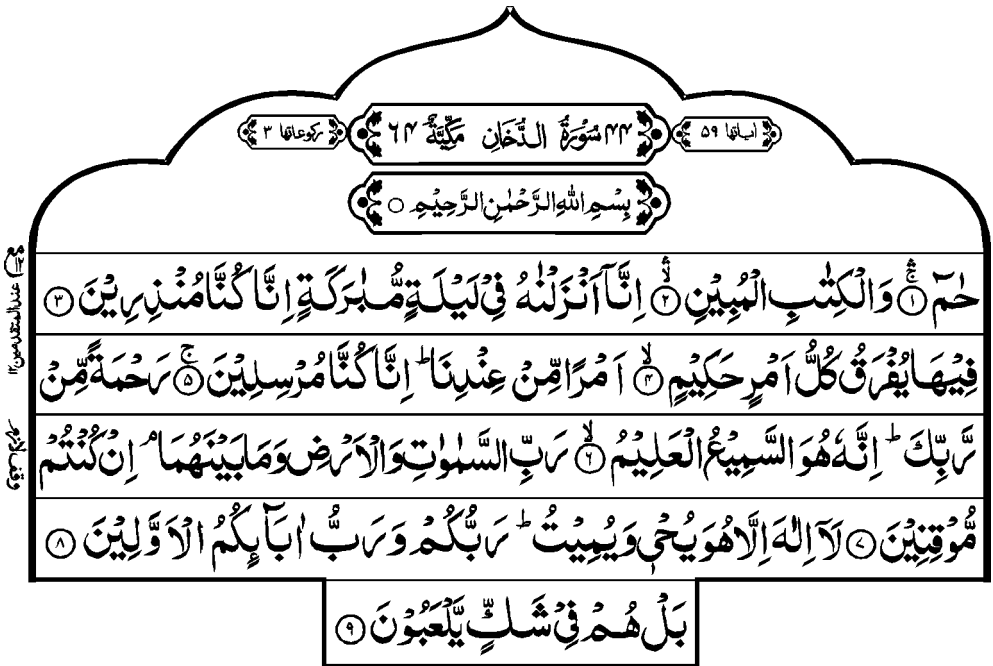 اٰیاتها ۵۹
۴۴ سُوْرَةُ الدُّخَانِ مَکِّیَّةٌ ۶۴
رکوعاتها ۳
بِسْمِ اللّٰهِ الرَّحْمٰنِ الرَّحِیْمِ ○
حٰمٓ ۚۛ﴿۱﴾ وَالْکِتٰبِ الْمُبِیْنِ ۙۛ﴿۲﴾ اِنَّاۤ اَنْزَلْنٰهُ فِیْ لَیْلَةٍ مُّبٰرَکَةٍ اِنَّا کُنَّا مُنْذِرِیْنَ ﴿۳﴾
فِیْهَا یُفْرَقُ کُلُّ اَمْرٍ حَکِیْمٍ ۙ﴿۴﴾ اَمْرًا مِّنْ عِنْدِنَا ؕ اِنَّا کُنَّا مُرْسِلِیْنَ ۚ﴿۵﴾ رَحْمَةً مِّنْ
رَّبِّکَ ؕ اِنَّهٗ هُوَ السَّمِیْعُ الْعَلِیْمُ ۙ﴿۶﴾ رَبِّ السَّمٰوٰتِ وَالْاَرْضِ وَمَا بَیْنَهُمَا ۘ اِنْ کُنْتُمْ
مُّوْقِنِیْنَ ﴿۷﴾ لَاۤ اِلٰهَ اِلَّا هُوَ یُحْیٖ وَیُمِیْتُ ؕ رَبُّکُمْ وَرَبُّ اٰبَآئِکُمُ الْاَوَّلِیْنَ ﴿۸﴾
بَلْ هُمْ فِیْ شَکٍّ یَّلْعَبُوْنَ ﴿۹﴾
عند المتقدمین ۱۲
وقف لازم